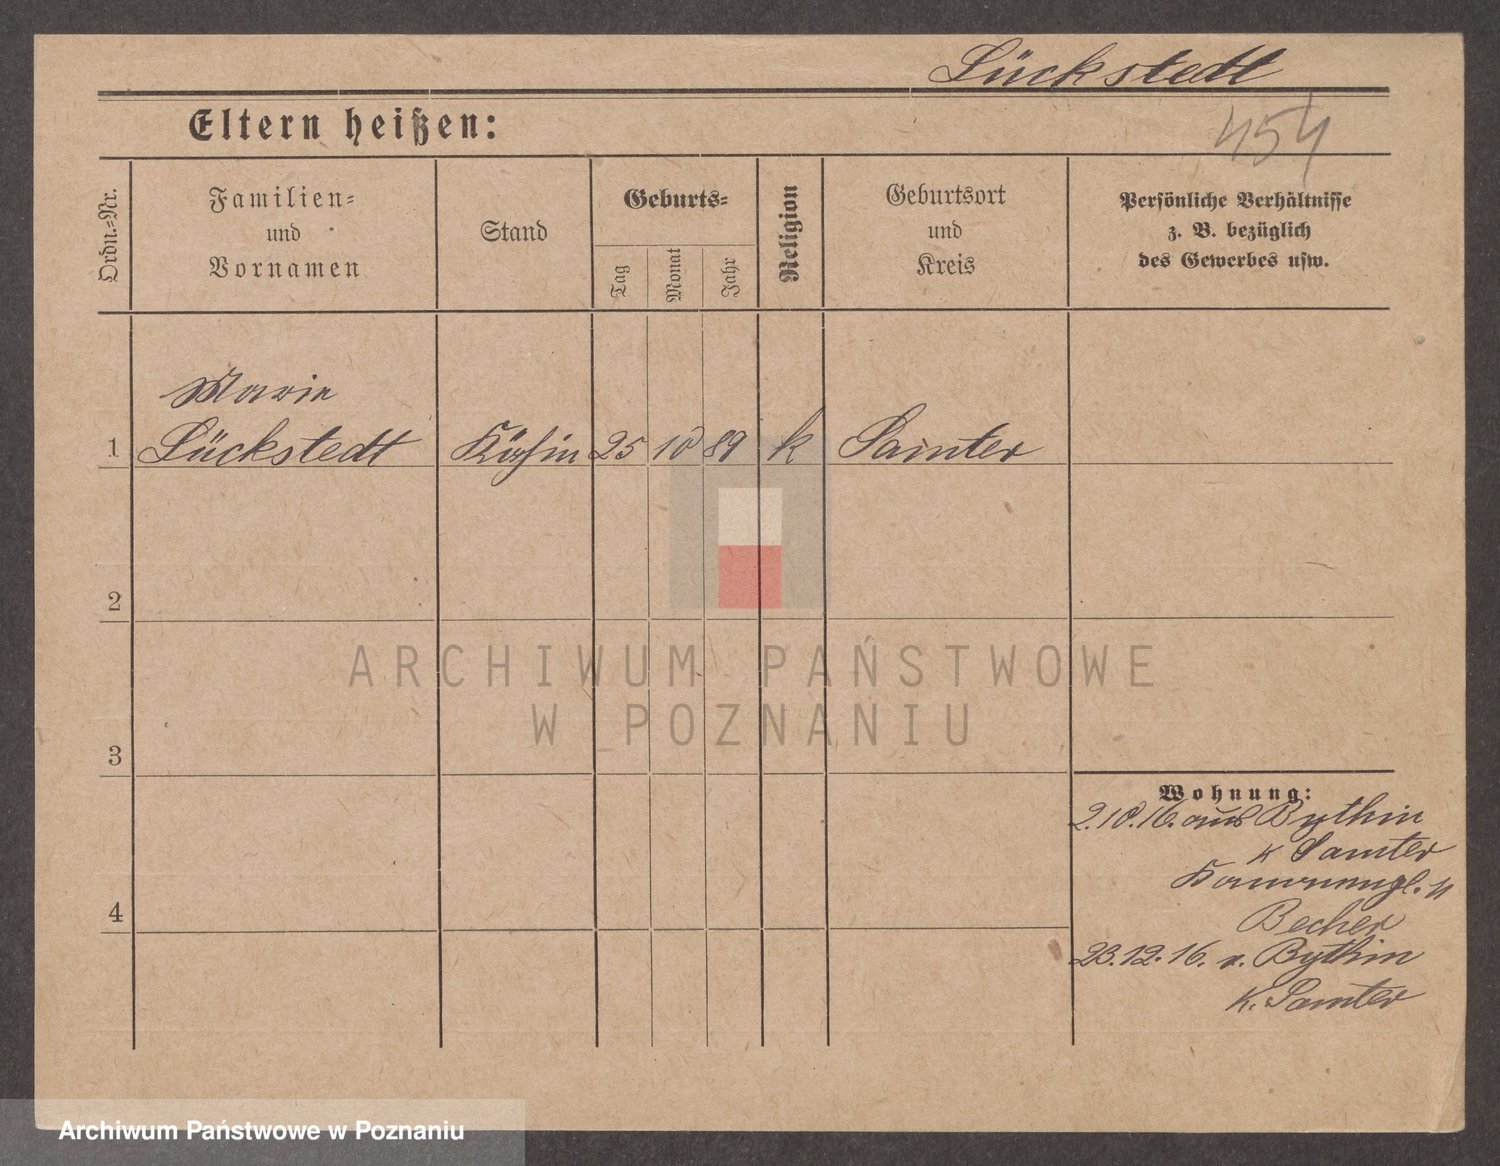 Lückstedt
454
Eltern heißen:
Ordn.-Nr.
Familien-
und
Vornamen
Stand
Geburts-
Tag
Monat
Jahr
Religion
Geburtsort
und
Kreis
Persönliche Verhältnisse
z. B. bezüglich
des Gewerbes usw.
Marie
1 Lückstedt Köchin 25 10 89 k Samter
2
3
4
Wohnung:
2.10.16. aus Bythin
K Samter
Becher
23.12.16. n. Bythin
K. Samter
ARCHIWUM PAŃSTWOWE
W POZNANIU
Archiwum Państwowe w Poznaniu